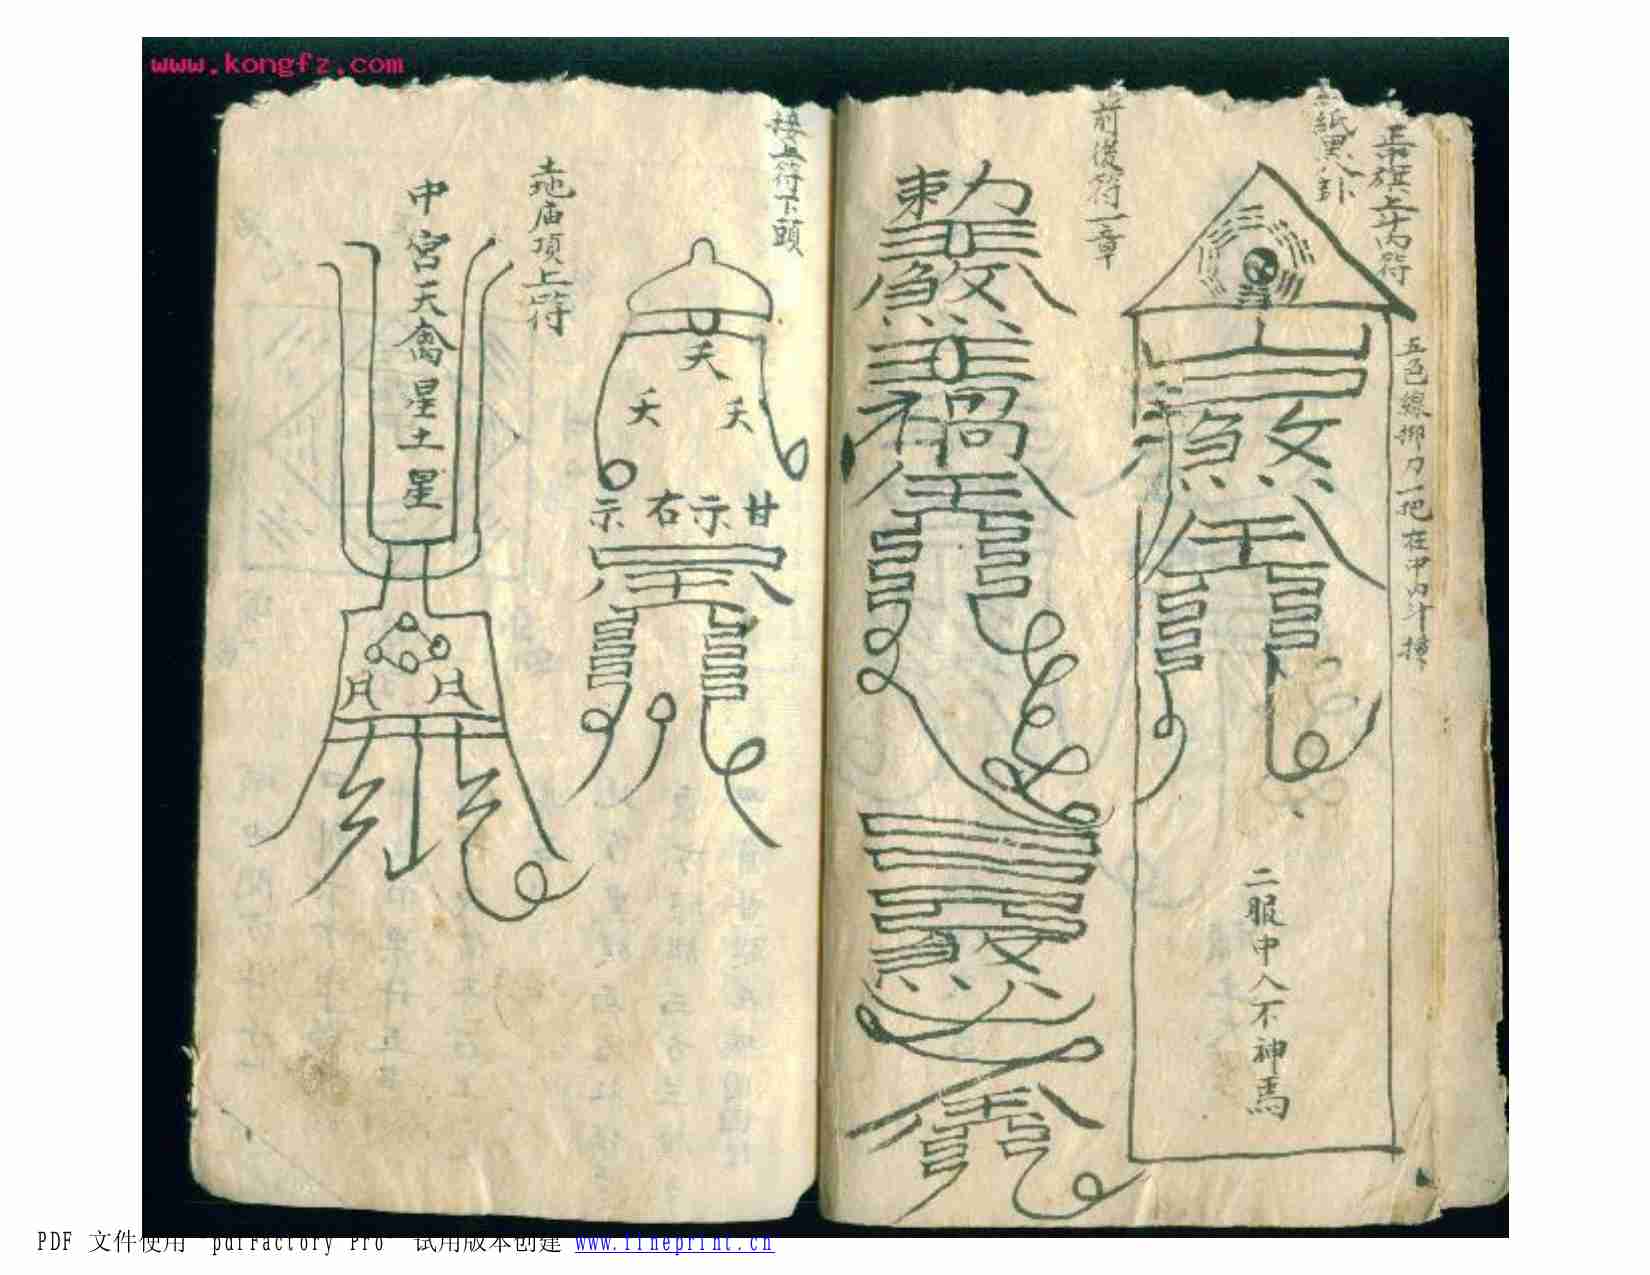 www.kongfz.com
旗上
符
紙黑八卦
五色線綁刀一把在中內斗
煞
二服中入不神焉
前後符一章
勅
煞
禍
煞
接上符下頭
夭
夭 夭
甘示右示
土地庙頂上符
中宮天禽星土星
PDF 文件使用 "pdfFactory Pro" 试用版本创建 www.fineprint.cn